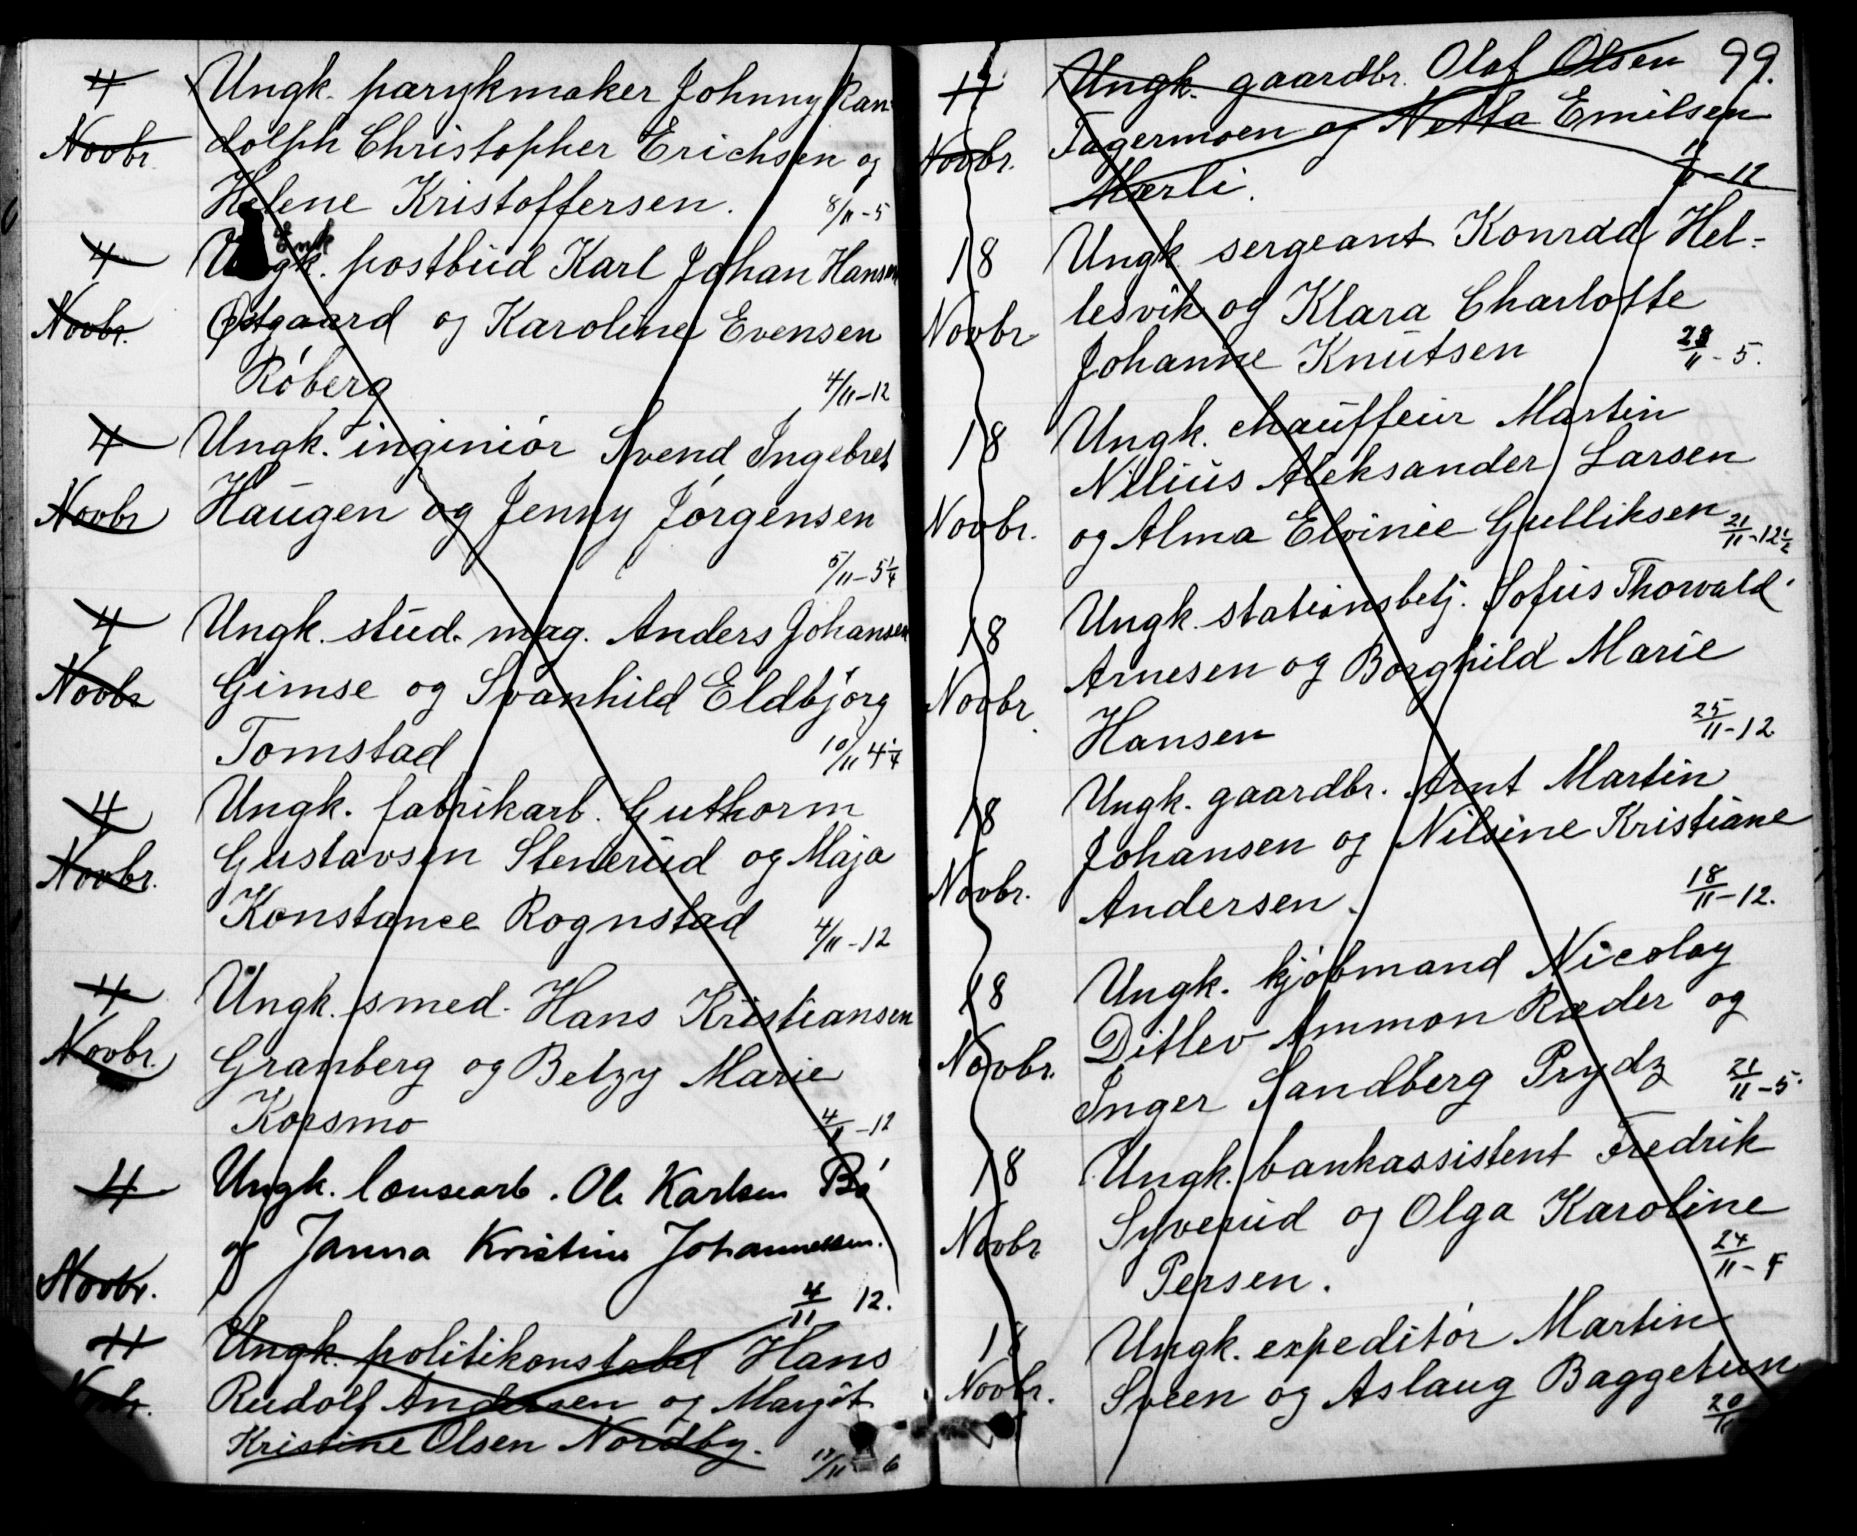 4 Ungk. parykmaker Johnny Ran-
Novbr. dolph Christopher Erichsen og
Helene Kristoffersen. 8/11-5
Enk
4 Ungk. postbud Karl Johan Hansen
Novbr. Østgaard og Karoline Evensen
Røberg 4/11-12
4 Ungk. ingeniør Svend Ingebret
Novbr Haugen og Jenny Jørgensen
5/11-5¼
4 Ungk. stud. mag. Anders Johansen
Novbr Gimse og Svanhild Eldbjørg
Tomstad 10/11 4¼
4 Ungk. fabrikarb. Guthorm
Novbr. Gustavsen Stenerud og Maja
Konstance Rognstad 4/11-12
4 Ungk. smed. Hans Kristiansen
Novbr. Granberg og Betzy Marie
Korsmo 4/11-12
4 Ungk. lænsearb. Ole Karlsen Bø
Novbr. og Janna Kristine Johannessen.
4/11 12.
11 Ungk. politikonstabel Hans
Novbr. Rudolf Andersen og Margit
Kristine Olsen Nordby. 17/11 6
99.
11 Ungk. gaardbr. Olaf Olsen
Novbr. Fagermoen og Netta Emilsen
Mærli. 11/11-12
18 Ungk. sergeant Konrad Hel-
Novbr lesvik og Klara Charlotte
Johanne Knutsen 28/11-5.
18 Ungk. chauffeur Martin
Nilius Aleksander Larsen
Novbr. og Alma Elvinie Gulliksen 21/11-12½
18 Ungk. stationsbetj. Sofus Thorvald
Novbr. Arnesen og Borghild Marie
Hansen 25/11-12
18 Ungk. gaardbr. Arnt Martin
Novbr. Johansen og Nilsine Kristiane
Andersen. 18/11-12.
18 Ungk. kjøbmand Nicolay
Novbr. Ditlev Ammon Ræder og
Inger Sandberg Prydz 21/11-5.
18 Ungk. bankassistent Fredrik
Novbr Syverud og Olga Karoline
Persen. 24/11-4
18 Ungk. expeditør Martin
Novbr. Sveen og Aslaug Baggetun
20/11